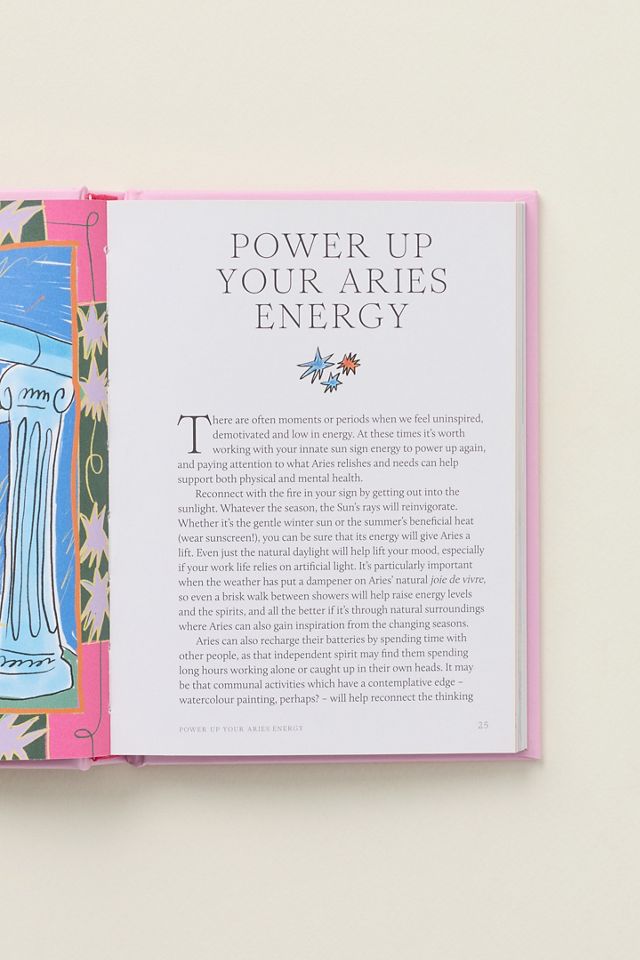 POWER UP
YOUR ARIES
ENERGY
There are often moments or periods when we feel uninspired,
demotivated and low in energy. At these times it's worth
working with your innate sun sign energy to power up again,
and paying attention to what Aries relishes and needs can help
support both physical and mental health.
Reconnect with the fire in your sign by getting out into the
sunlight. Whatever the season, the Sun's rays will reinvigorate.
Whether it's the gentle winter sun or the summer's beneficial heat
(wear sunscreen!), you can be sure that its energy will give Aries a
lift. Even just the natural daylight will help lift your mood, especially
if your work life relies on artificial light. It's particularly important
when the weather has put a dampener on Aries' natural joie de vivre,
so even a brisk walk between showers will help raise energy levels
and the spirits, and all the better if it's through natural surroundings
where Aries can also gain inspiration from the changing seasons.
Aries can also recharge their batteries by spending time with
other people, as that independent spirit may find them spending
long hours working alone or caught up in their own heads. It may
be that communal activities which have a contemplative edge –
watercolour painting, perhaps? – will help reconnect the thinking
POWER UP YOUR ARIES ENERGY
25